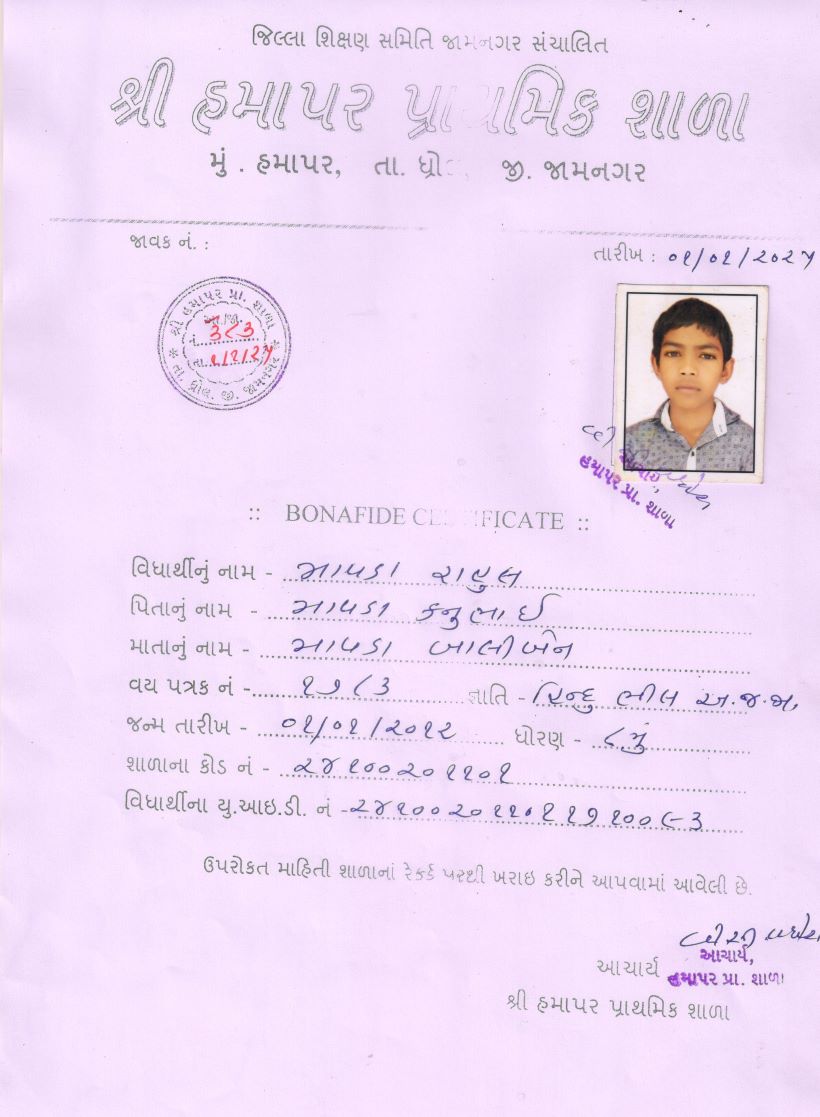 જિલ્લા શિક્ષણ સમિતિ જામનગર સંચાલિત
શ્રી હમાપર પ્રાથમિક શાળા
મું . હમાપર, તા. ધ્રોલ, જી. જામનગર
જાવક નં. :
તારીખ : ૦૧/૦૧/૨૦૨૫
શ્રી હમાપર પ્રા. શાળા
તા. ધ્રોલ. જી. જામનગર
નં. ૩૮૩
તા. ૧/૧/૨૫
આચાર્ય,
હમાપર પ્રા. શાળા
:: BONAFIDE CERTIFICATE ::
વિધાર્થીનું નામ - માપડા રાહુલ
પિતાનું નામ - માપડા કનુભાઈ
માતાનું નામ - માપડા બાલીબેન
વય પત્રક નં - ૧૭૮૩ જ્ઞાતિ - હિન્દુ ભીલ અ.જ.જા.
જન્મ તારીખ - ૦૧/૦૧/૨૦૧૨ ધોરણ - ૮મું
શાળાના કોડ નં - ૨૪૧૦૦૨૦૧૧૦૧
વિધાર્થીના યુ.આઇ.ડી. નં - ૨૪૧૦૦૨૦૧૧૦૧૧૭૧૦૦૯૩
ઉપરોકત માહિતી શાળાનાં રેકર્ડ પરથી ખરાઇ કરીને આપવામાં આવેલી છે.
આચાર્ય,
આચાર્ય હમાપર પ્રા. શાળા
શ્રી હમાપર પ્રાથમિક શાળા